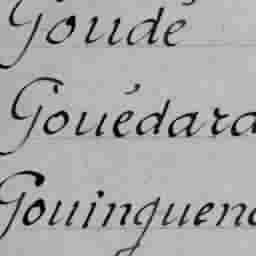 Goudé
Gouédard
Gouinguene